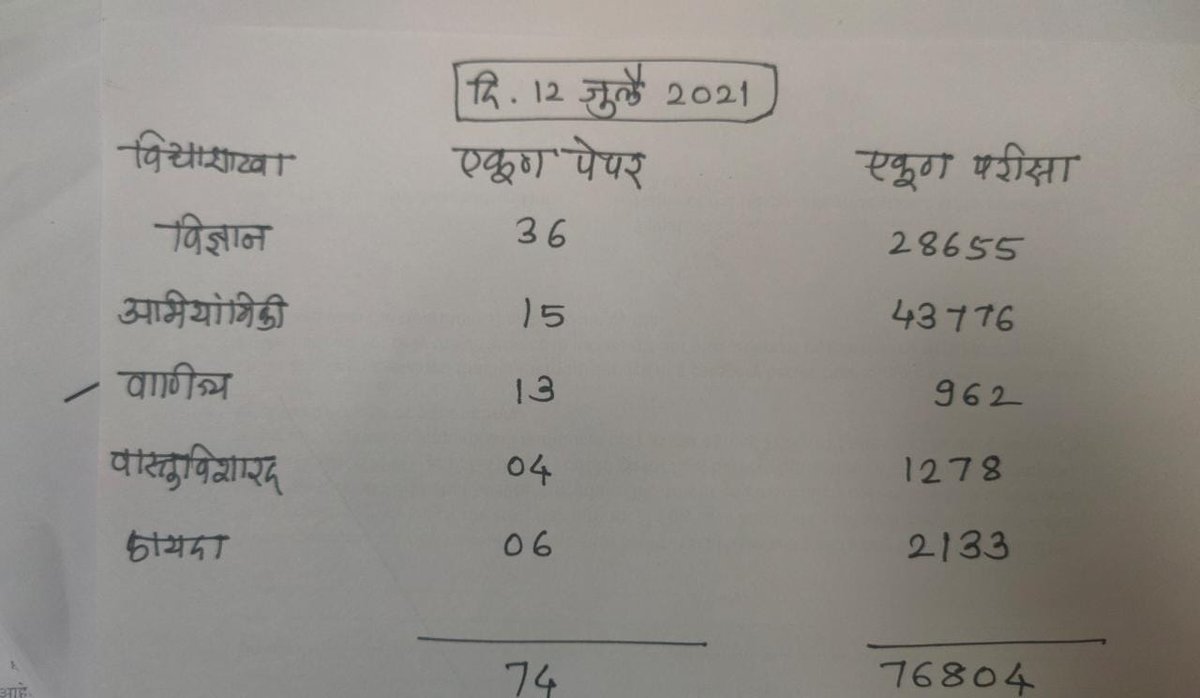 दि. 12 जुलै 2021
विद्याशाखा एकूण पेपर एकूण परीक्षा
विज्ञान 36 28655
अभियांत्रिकी 15 43776
वाणिज्य 13 962
वास्तुविशारद 04 1278
कायदा 06 2133
74 76804
आहे.